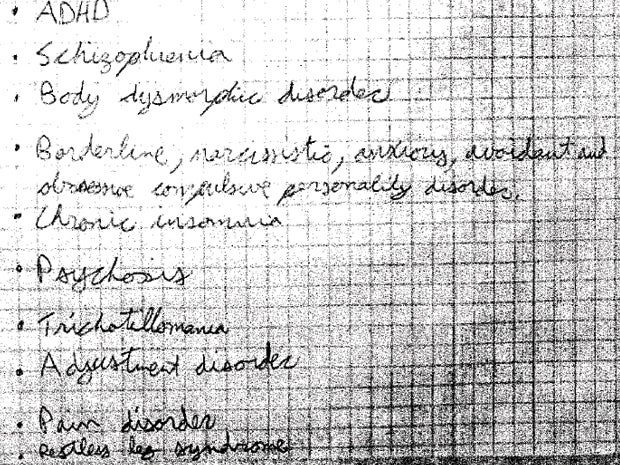 • ADHD
• Schizophrenia
• Body dysmorphic disorder
• Borderline, narcissistic, anxious, avoidant and
obsessive compulsive personality disorder.
• Chronic insomnia
• Psychosis
• Trichotillomania
• Adjustment disorder
• Pain disorder
• Restless leg syndrome